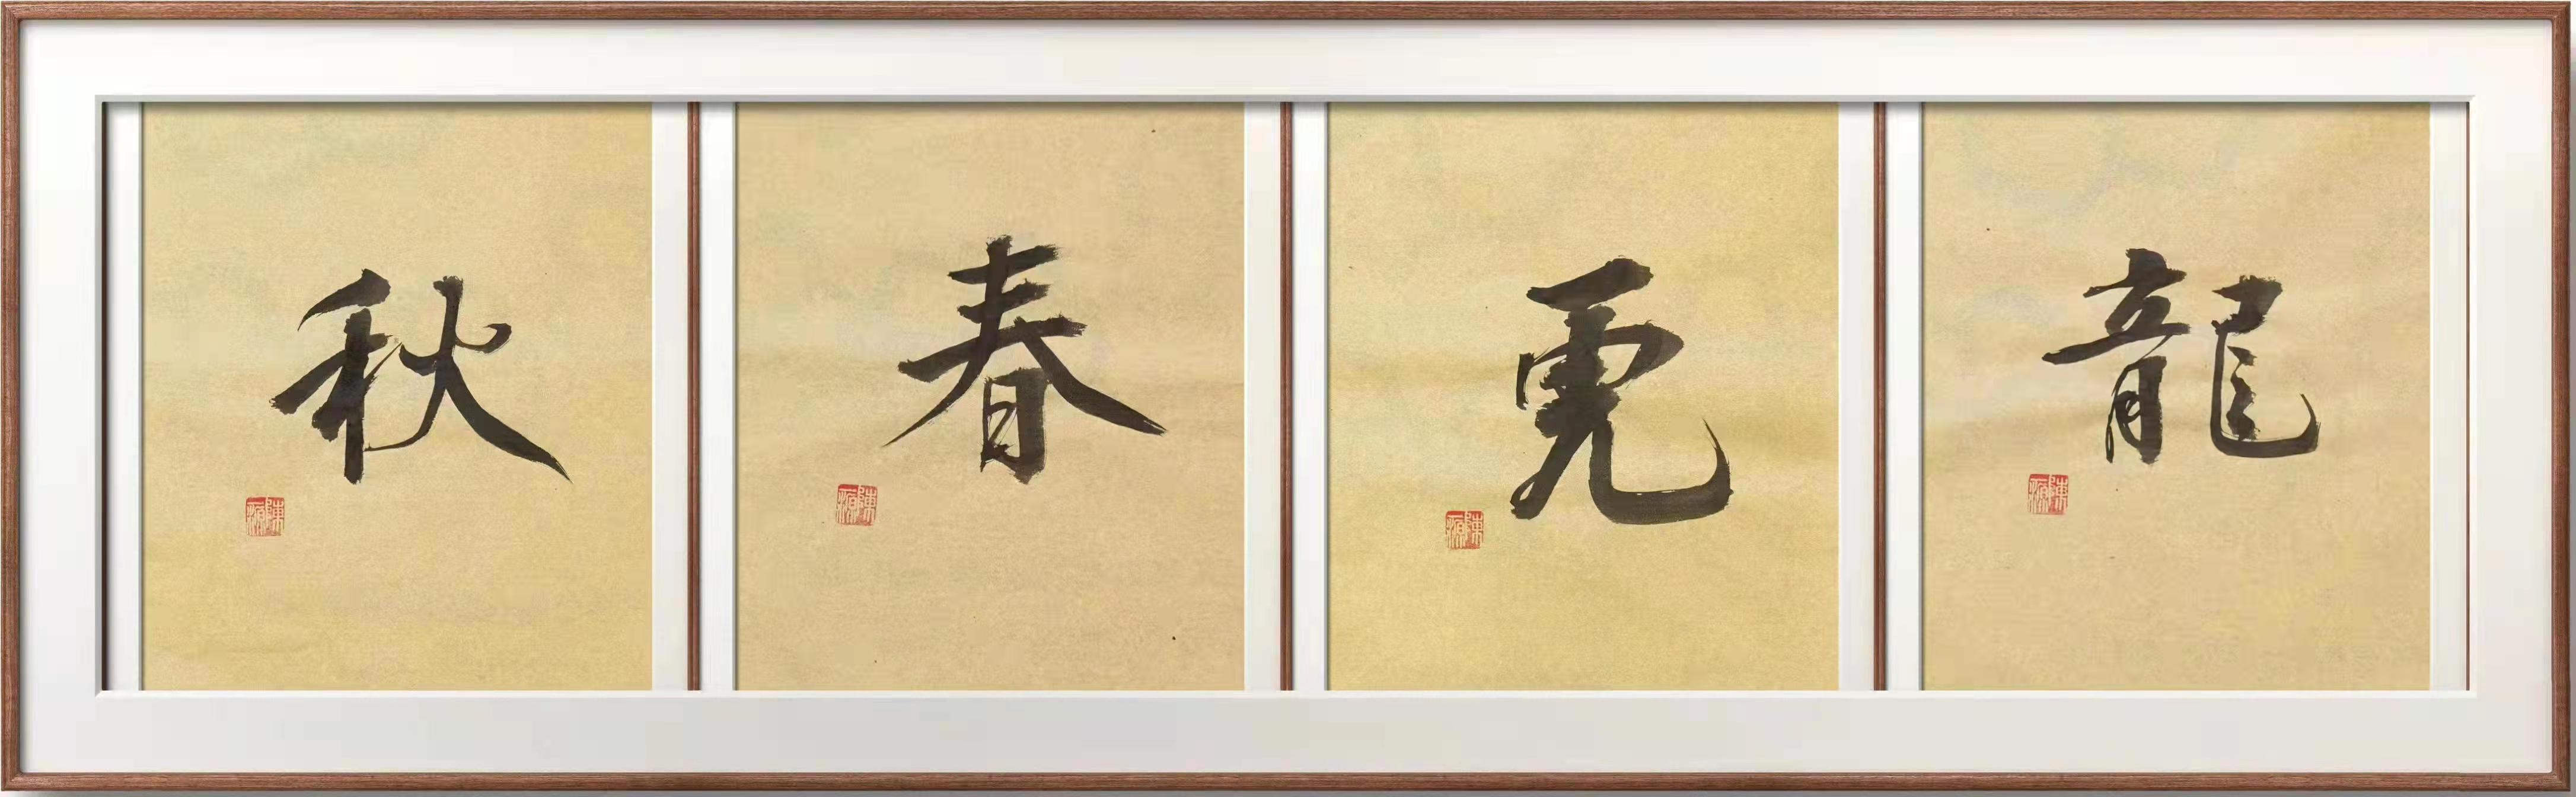 龍虎春秋